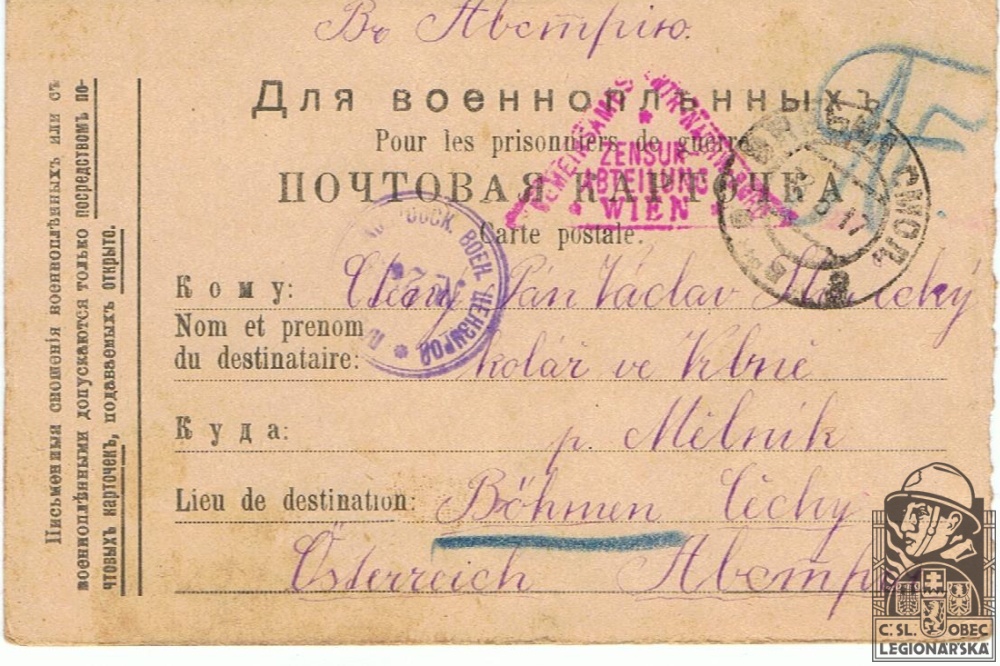 Въ Австрію.
Для военноплѣнныхъ
Pour les prisonniers de guerre
ПОЧТОВАЯ КАРТОЧКА
Carte postale.
ZENSUR
ABTEILUNG
WIEN
ВОЕН. ЦЕНЗУРОЙ
17
Кому: Ctěný Pán Václav
Nom et prenom
du destinataire: kolář ve Vrbně
Куда: p. Mělník
Lieu de destination: Böhmen Čechy
Österreich Австрія
Письменныя сношенія военноплѣнныхъ или съ
военноплѣнными допускаются только посредствомъ по-
чтовыхъ карточекъ, подаваемыхъ открыто.
Č. SL. OBEC
LEGIONÁŘSKÁ